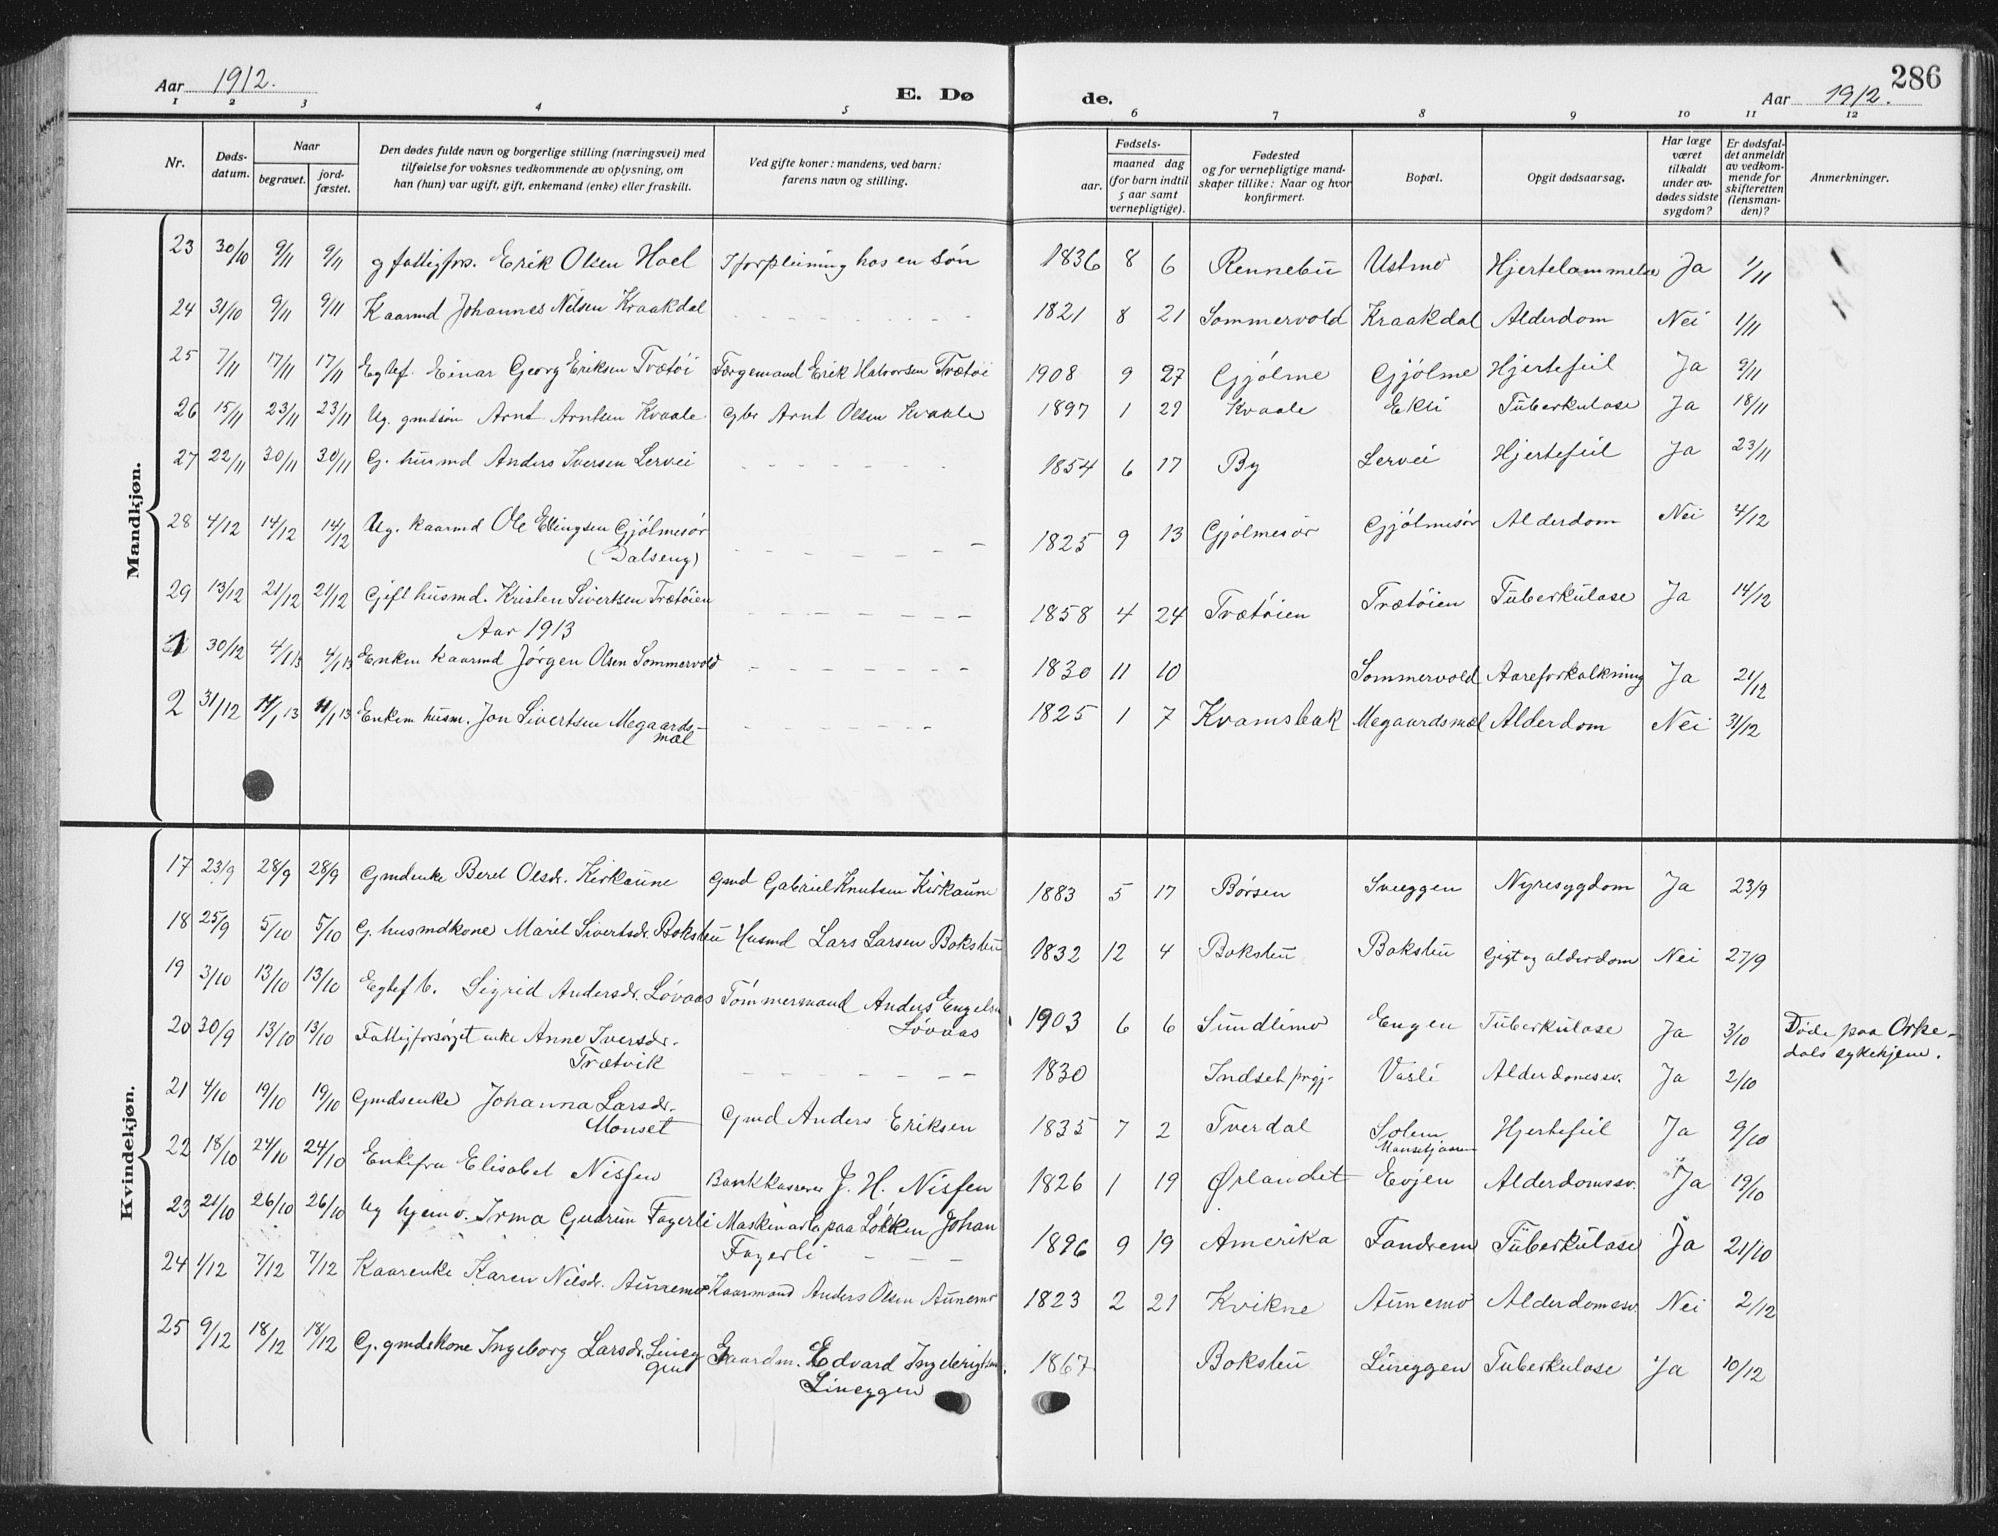 286
Aar 1912. E. Dø de. Aar 1912.
1 2 3 4 5 6 7 8 9 10 11 12
Nr. Døds-datum. Naar begravet. jord-fæstet. Den dødes fulde navn og borgerlige stilling (næringsvei) med tilføielse for voksnes vedkommende av oplysning, om han (hun) var ugift, gift, enkemand (enke) eller fraskilt. Ved gifte koner: mandens, ved barn: farens navn og stilling. Fødsels- aar. maaned dag (for barn indtil 5 aar samt vernepligtige). Fødested og for vernepligtige mand-skaper tillike: Naar og hvor konfirmert. Bopæl. Opgit dødsaarsag. Har læge været tilkaldt under av-dødes sidste sygdom? Er dødsfal-det anmeldt av vedkom-mende for skifteretten (lensman-den)? Anmerkninger.
Mandkjøn.
23 30/10 9/11 9/11 g fattigfors. Erik Olsen Hoel I forpleining hos en søn 1836 8 6 Rennebu Ustmo Hjertelammelse Ja 1/11
24 31/10 9/11 9/11 Kaarmd Johannes Nilsen Kraakdal 1821 8 21 Sommervold Kraakdal Alderdom Nei 1/11
25 7/11 17/11 17/11 Egtef. Einar Georg Eriksen Trætøi Færgemand Erik Halvorsen Trætøi 1908 9 27 Gjølme Gjølme Hjertefeil Ja 9/11
26 15/11 23/11 23/11 Ug. gmdsøn Arnt Arntsen Kvaale Gbr Arnt Olsen Kvaale 1897 1 29 Kvaale Ekli Tuberkulose Ja 18/11
27 22/11 30/11 30/11 G. husmd Anders Iversen Lervei 1854 6 17 By Lervei Hjertefeil Ja 23/11
28 4/12 14/12 14/12 Ug. kaarmd Ole Ellingsen Gjølmesør 1825 9 13 Gjølmesør Gjølmesør Alderdom Nei 4/12
(Dalseng)
29 13/12 21/12 21/12 Gift husmd. Kristen Sivertsen Trætøien 1858 4 24 Trætøien Trætøien Tuberkulose Ja 14/12
Aar 1913
1 30/12 4/1 13 4/1 13 Enkem kaarmd Jørgen Olsen Sommervold 1830 11 10 Sommervold Aareforkalkning Ja 21/12
2 31/12 11/1 13 11/1 13 Enkem husm. Jon Sivertsen Megaards- 1825 1 7 Kvamsbak Megaardsmæl Alderdom Nei 31/12
mæl
Kvindekjøn.
17 23/9 28/9 28/9 Gmdenke Beret Olsdr. Kirkaune Gmd Gabriel Knutsen Kirkaune 1883 5 17 Børsen Sveeggen Nyresygdom Ja 23/9
18 25/9 5/10 5/10 G. husmdkone Marit Sivertsdr. Bokstøu Husmd Lars Larsen Bokstøu 1832 12 4 Bokstøu Bokstøu Gigt og alderdom Nei 27/9
19 3/10 13/10 13/10 Egtef b. Sigrid Andersdr. Løvaas Tømmermand Anders Engelsn Løvaas 1903 6 6 Sundlimo Engen Tuberkulose Ja 3/10 Døde paa Orke-
dals sykehjem.
20 30/9 13/10 13/10 Fattigforsørget enke Anne Iversdr. Trætvik 1830 Indset prgj. Vasli Alderdomssv. Ja 2/10
21 4/10 19/10 19/10 Gmdsenke Johanna Larsdr. Monset Gmd Anders Eriksen 1835 7 2 Tverdal Solem Monsetjaaren Hjertefeil Ja 9/10
22 18/10 24/10 24/10 Enkefru Elisabet Nissen Bankkasserer J. H. Nissen 1826 1 19 Ørlandet Evjen Alderdomssv. Ja 19/10
23 21/10 26/10 26/10 Ug hjemv. Irma Gudrun Fagerli Maskinarb paa Løkken Johan Fagerli 1896 9 19 Amerika Fandrem Tuberkulose Ja 21/10
24 1/12 7/12 7/12 Kaarenke Karen Nilsdr. Aunemo Kaarmand Anders Olsen Aunemo 1823 2 21 Kvikne Aunemo Alderdomssv Nei 2/12
25 9/12 18/12 18/12 G. gmdskone Ingeborg Larsdr. Lineggen Gaardm. Edvard Ingebrigtsen 1867 Bokstøu Lineggen Tuberkulose Ja 10/12
Lineggen